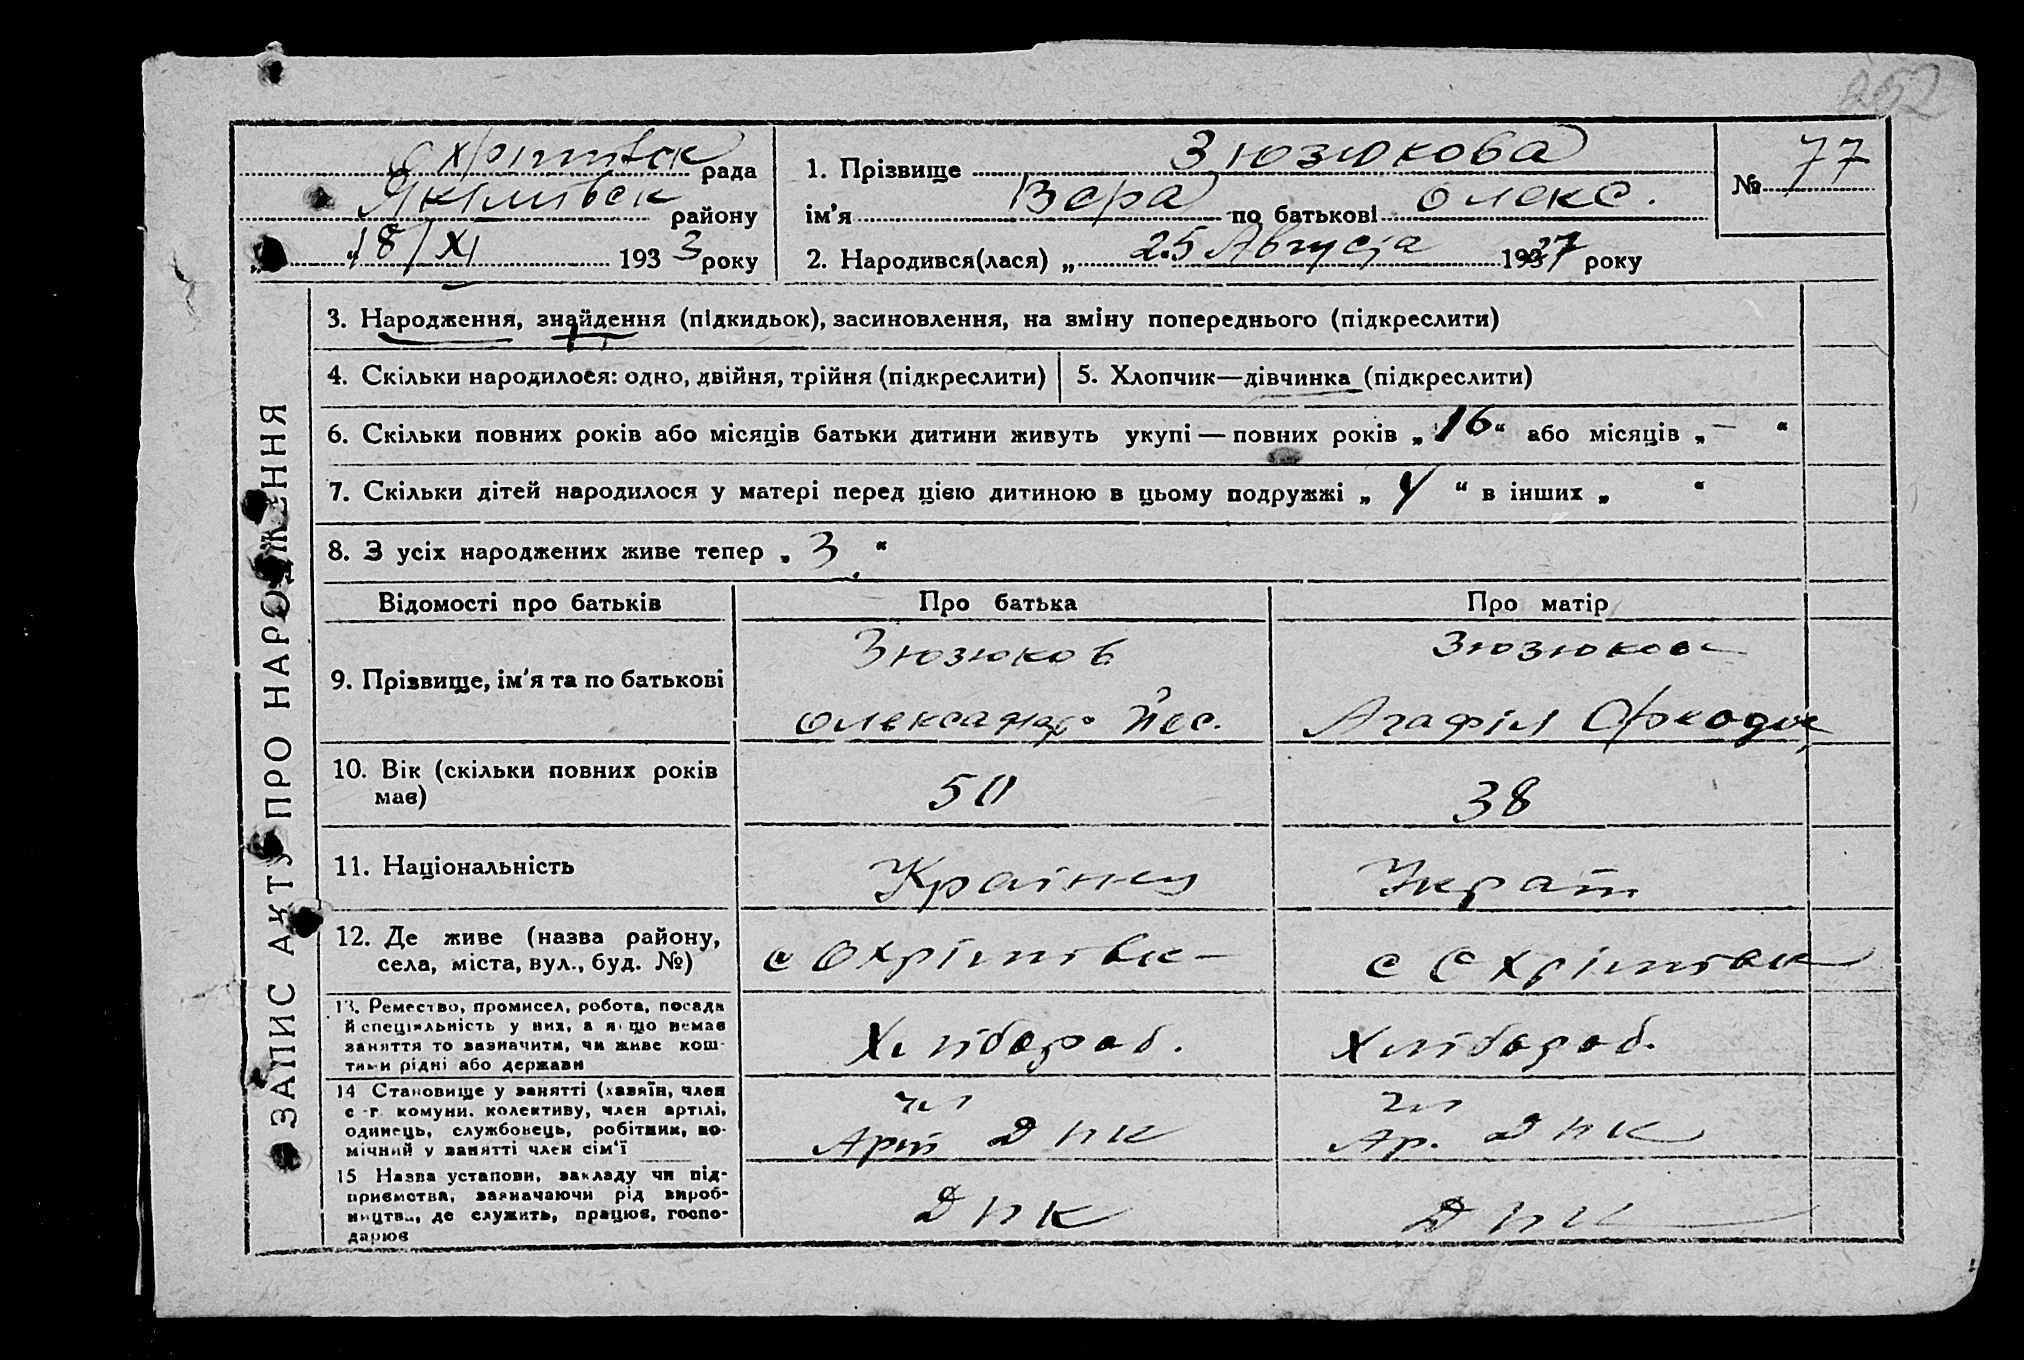 252
Охріmівск рада
Якімівск районy
„ 18/XI 1933 року
1. Прізвище Зюзюкова
ім'я Вера по батькові Олекс.
№ 77
2. Народився(лася) „ 25 Августа 1927 року
ЗАПИС АКТУ ПРО НАРОДЖЕННЯ
3. Народження, знайдення (підкидьок), засиновлення, на зміну попереднього (підкреслити)
4. Скільки народилося: одно, двійня, трійня (підкреслити)
5. Хлопчик—дівчинка (підкреслити)
6. Скільки повних років або місяців батьки дитини живуть укупі — повних років „ 16 “ або місяців „ — “
7. Скільки дітей народилося у матері перед цією дитиною в цьому подружжі „ 4 “ в інших „ “
8. З усіх народжених живе тепер „ 3 “
Відомості про батьків
Про батька
Про матір
9. Прізвище, ім'я та по батькові
Зюзюков
Олександр Йос.
Зюзюкова
Агафія
10. Вік (скільки повних років
має)
50
38
11. Національність
Країнец
Украт
12. Де живе (назва району,
села, міста, вул., буд. №)
с Охрімівк
с Охрімівк
13. Ремество, промисел, робота, посада
й спеціяльність у них, а якщо немає
заняття то зазначити, чи живе кош-
тами рідні або держави
Хлібороб.
Хлібороб.
14 Становище у занятті (хазяїн, член
с.-г. комуни, колективу, член артілі,
одинець, службовець, робітник, по-
мічний у занятті член сім'ї
чл
Арт ДНК
чл
Ар. ДНК
15 Назва установи, закладу чи під-
приємства, зазначаючи рід вироб-
ництва, де служить, працює, госпо-
дарює
ДНК
ДНК